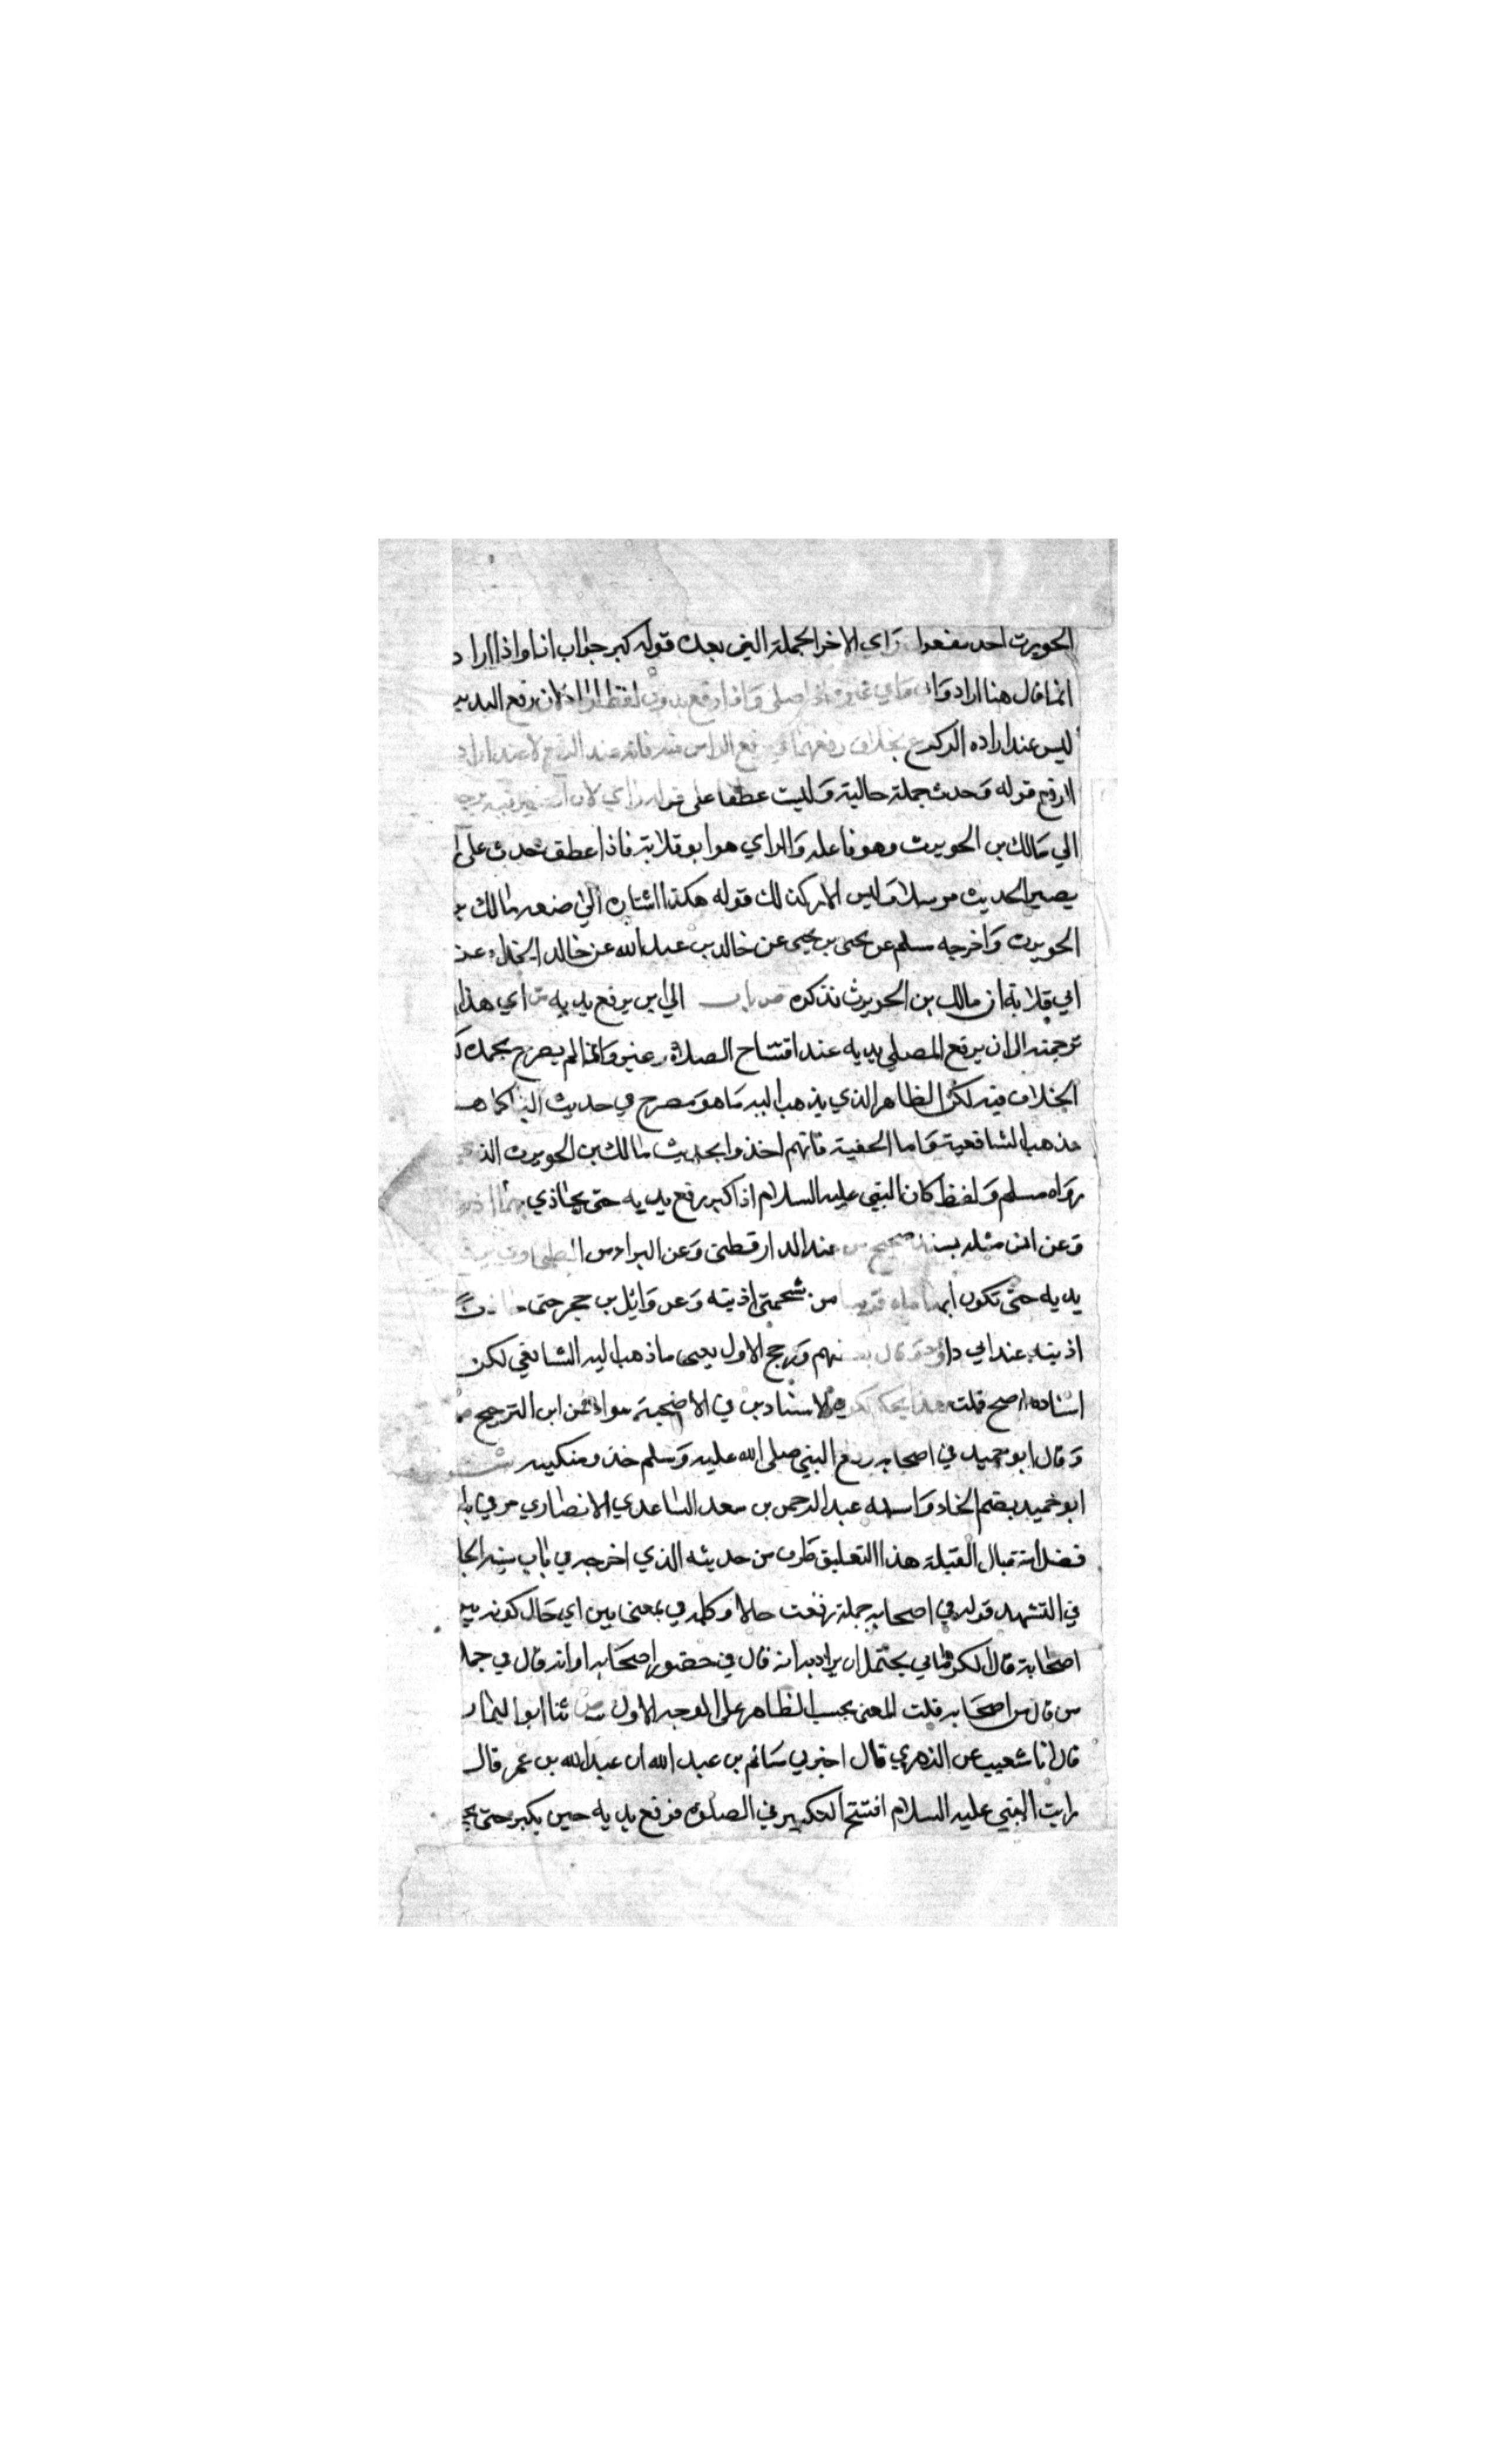 الحويرث احد مفعولي راي الاخر الجملة التي بعده قوله كبر جواب اذا واذا اراد
انما قال هنا اراد وان وفي غيره اذا صلى واذا رفع بدون لفظ اراد لان رفع اليدين
ليس عند اراده الركوع بخلاف رفعهما في رفع الراس منه فانه عند الرفع لا عند اراد
الرفع قوله وحدث جملة حالية وليست عطفا على قوله راي لان الضمير فيه يرجع
الي مالك بن الحويرث وهو فاعله والراي هو ابو قلابة فاذا عطف حدث على
يصير الحديث مرسلا وليس الامر كذلك قوله هكذا اشارة الي صنع مالك بن
الحويرث واخرجه مسلم عن يحيى بن يحيى عن خالد بن عبد الله عن خالد الحذاء عن
ابي قلابة ان مالك بن الحويرث فذكره ص باب الي اين يرفع يديه ش اي هذا
ترجمته الي ان يرفع المصلي يديه عند افتتاح الصلاة وغيره وانما لم يصرح بحكمه
الخلاف فيه لكن الظاهر الذي يذهب اليه ما هو مصرح في حديث الباب كما هـ
مذهب الشافعية واما الحنفية فانهم اخذوا بحديث مالك بن الحويرث الذي
رواه مسلم ولفظ كان النبي عليه السلام اذا كبر رفع يديه حتى يحاذي بهما اذنيه
وعن انس مثله بسند صحيح من عند الدارقطني وعن البراء من الطحاوي يرفع
يديه حتى تكون ابهاماه قريبا من شحمتي اذنيه وعن وائل بن حجر حتى حاذتا
اذنيه عند ابي داود وقال بعضهم ورجح الاول يعني ما ذهب اليه الشافعي لكن
اسناده اصح قلت هذا تحكم لكون الاسنادين في الاصحية سواء فمن اين الترجيح ص
وقال ابو حميد في اصحابه رفع النبي صلى الله عليه وسلم حذو منكبيه ش
ابو حميد بضم الحاء واسمه عبد الرحمن بن سعد الساعدي الانصاري مر في باب
فضل استقبال القبلة هذا التعليق طرف من حديثه الذي اخرجه في باب سنة الجا
في التشهد قوله في اصحابه جملة وقعت حالا وكلمة في بمعنى بين اي حال كونه بين
اصحابة قال الكرماني يحتمل ان يراد به انه قال في حضور اصحابه او انه قال في جملة
من قال من اصحابه قلت المعنى بحسب الظاهر على الوجه الاول ص ثنا ابو اليمان
قال انا شعيب عن الزهري قال اخبرني سالم بن عبد الله ان عبد الله بن عمر قال
رايت النبي عليه السلام افتتح التكبير في الصلوة فرفع يديه حين يكبر حتى يجـ